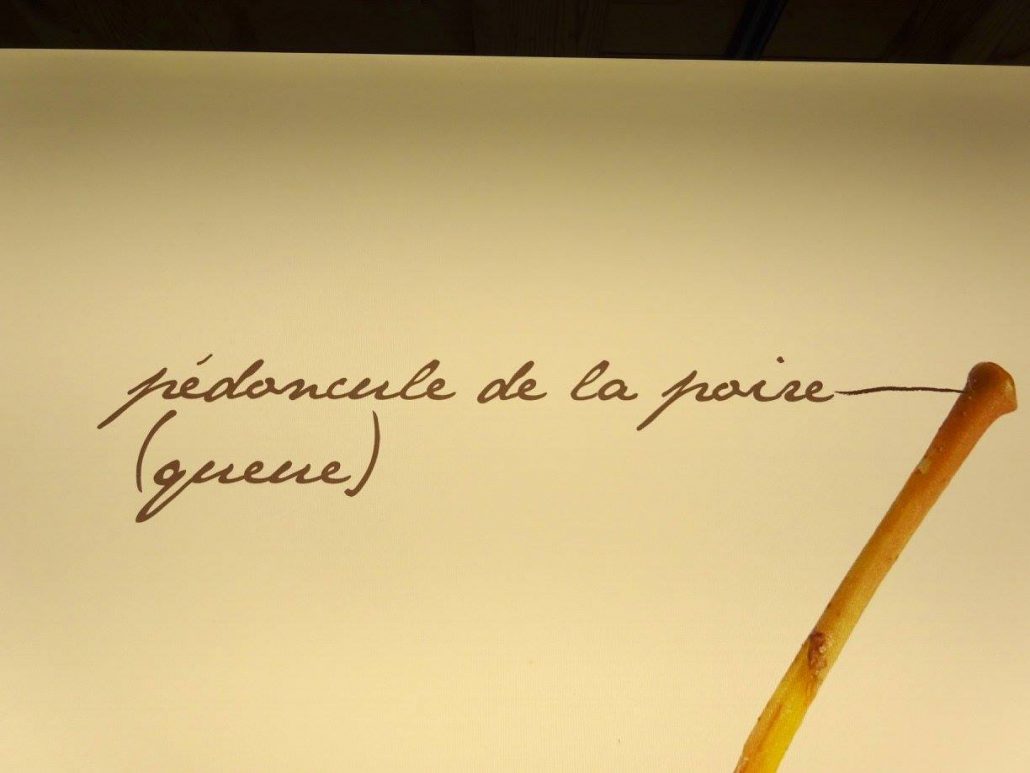 pédoncule de la poire
(queue)